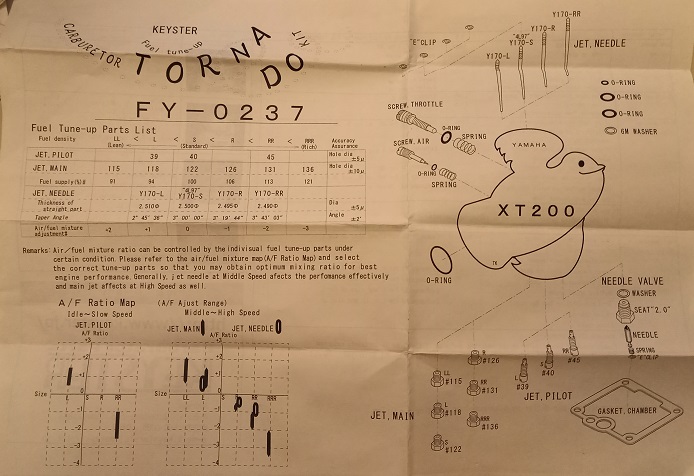 KEYSTER
CARBURETOR Fuel tune-up KIT
TORNADO
FY-0237
Fuel Tune-up Parts List
Fuel density LL (Lean) < L < S (Standard) < R < RR < RRR (Rich) Accuracy Assurance
JET, PILOT 39 40 45 Hole dia ±5μ
JET, MAIN 115 118 122 126 131 136 Hole dia ±10μ
Fuel supply(%) 91 94 100 106 113 121
JET, NEEDLE Y170-L "4L97" Y170-S Y170-R Y170-RR
Thickness of straight part 2.510Φ 2.500Φ 2.495Φ 2.490Φ Dia ±5μ
Taper Angle 2° 45' 38" 3° 00' 00" 3° 19' 44" 3° 43' 03" Angle ±2'
Air/fuel mixture adjustment +2 +1 0 -1 -2 -3
Remarks: Air/fuel mixture ratio can be controlled by the indivisual fuel tune-up parts under
certain condition. Please refer to the air/fuel mixture map(A/F Ratio Map) and select
the correct tune-up parts so that you may obtain optimum mixing ratio for best
engine performance. Generally, jet needle at Middle Speed afects the perfomance effectively
and main jet affects at High Speed as well.
A/F Ratio Map (A/F Ajust Range)
Idle~Slow Speed Middle~High Speed
JET, PILOT JET, MAIN JET, NEEDLE
A/F Ratio A/F Ratio
+3 +3
+2 +2
+1
Size L S R RR Size LL L S R RR RRR
-1 -1
-2 -2
-3 -3
-4 -4
"E"CLIP
Y170-RR
Y170-R
"4L97"
Y170-S
Y170-L
JET, NEEDLE
SCREW, THROTTLE
O-RING
SPRING
SCREW, AIR
O-RING
SPRING
O-RING
O-RING
O-RING
6M WASHER
YAMAHA
XT200
TK
O-RING
NEEDLE VALVE
WASHER
SEAT"2.0"
NEEDLE
SPRING
"E"CLIP
R #126
LL #115
RR #131
L #118
RRR #136
S #122
JET, MAIN
L #39
S #40
RR #45
JET, PILOT
GASKET, CHAMBER